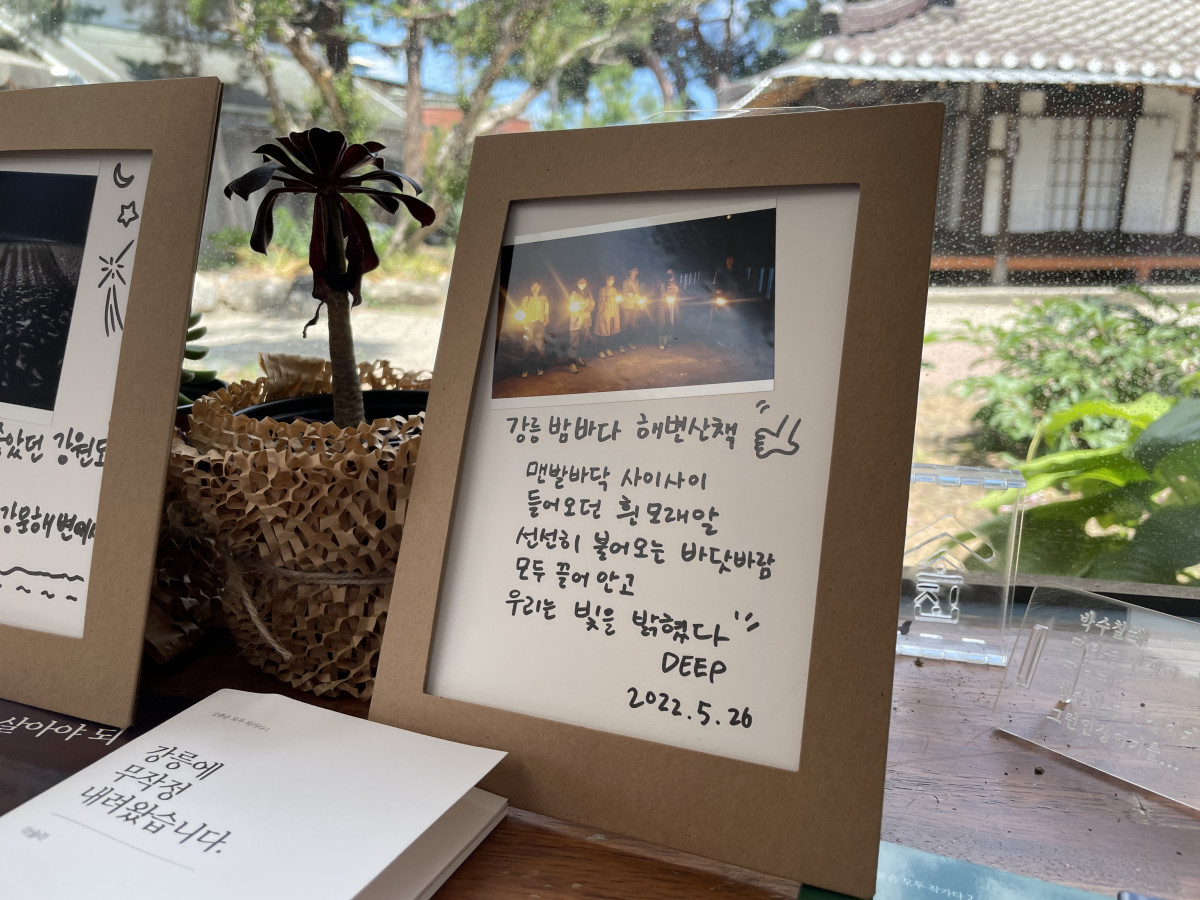 강릉 밤바다 해변산책
맨발바닥 사이사이
들어오던 흰모래알
선선히 불어오는 바닷바람
모두 끌어안고
우리는 빛을 밝혔다
DEEP
2022.5.26
좋았던 강원도
살아야 되
강릉에
무작정
내려왔습니다.
박수칠
모두 작가다